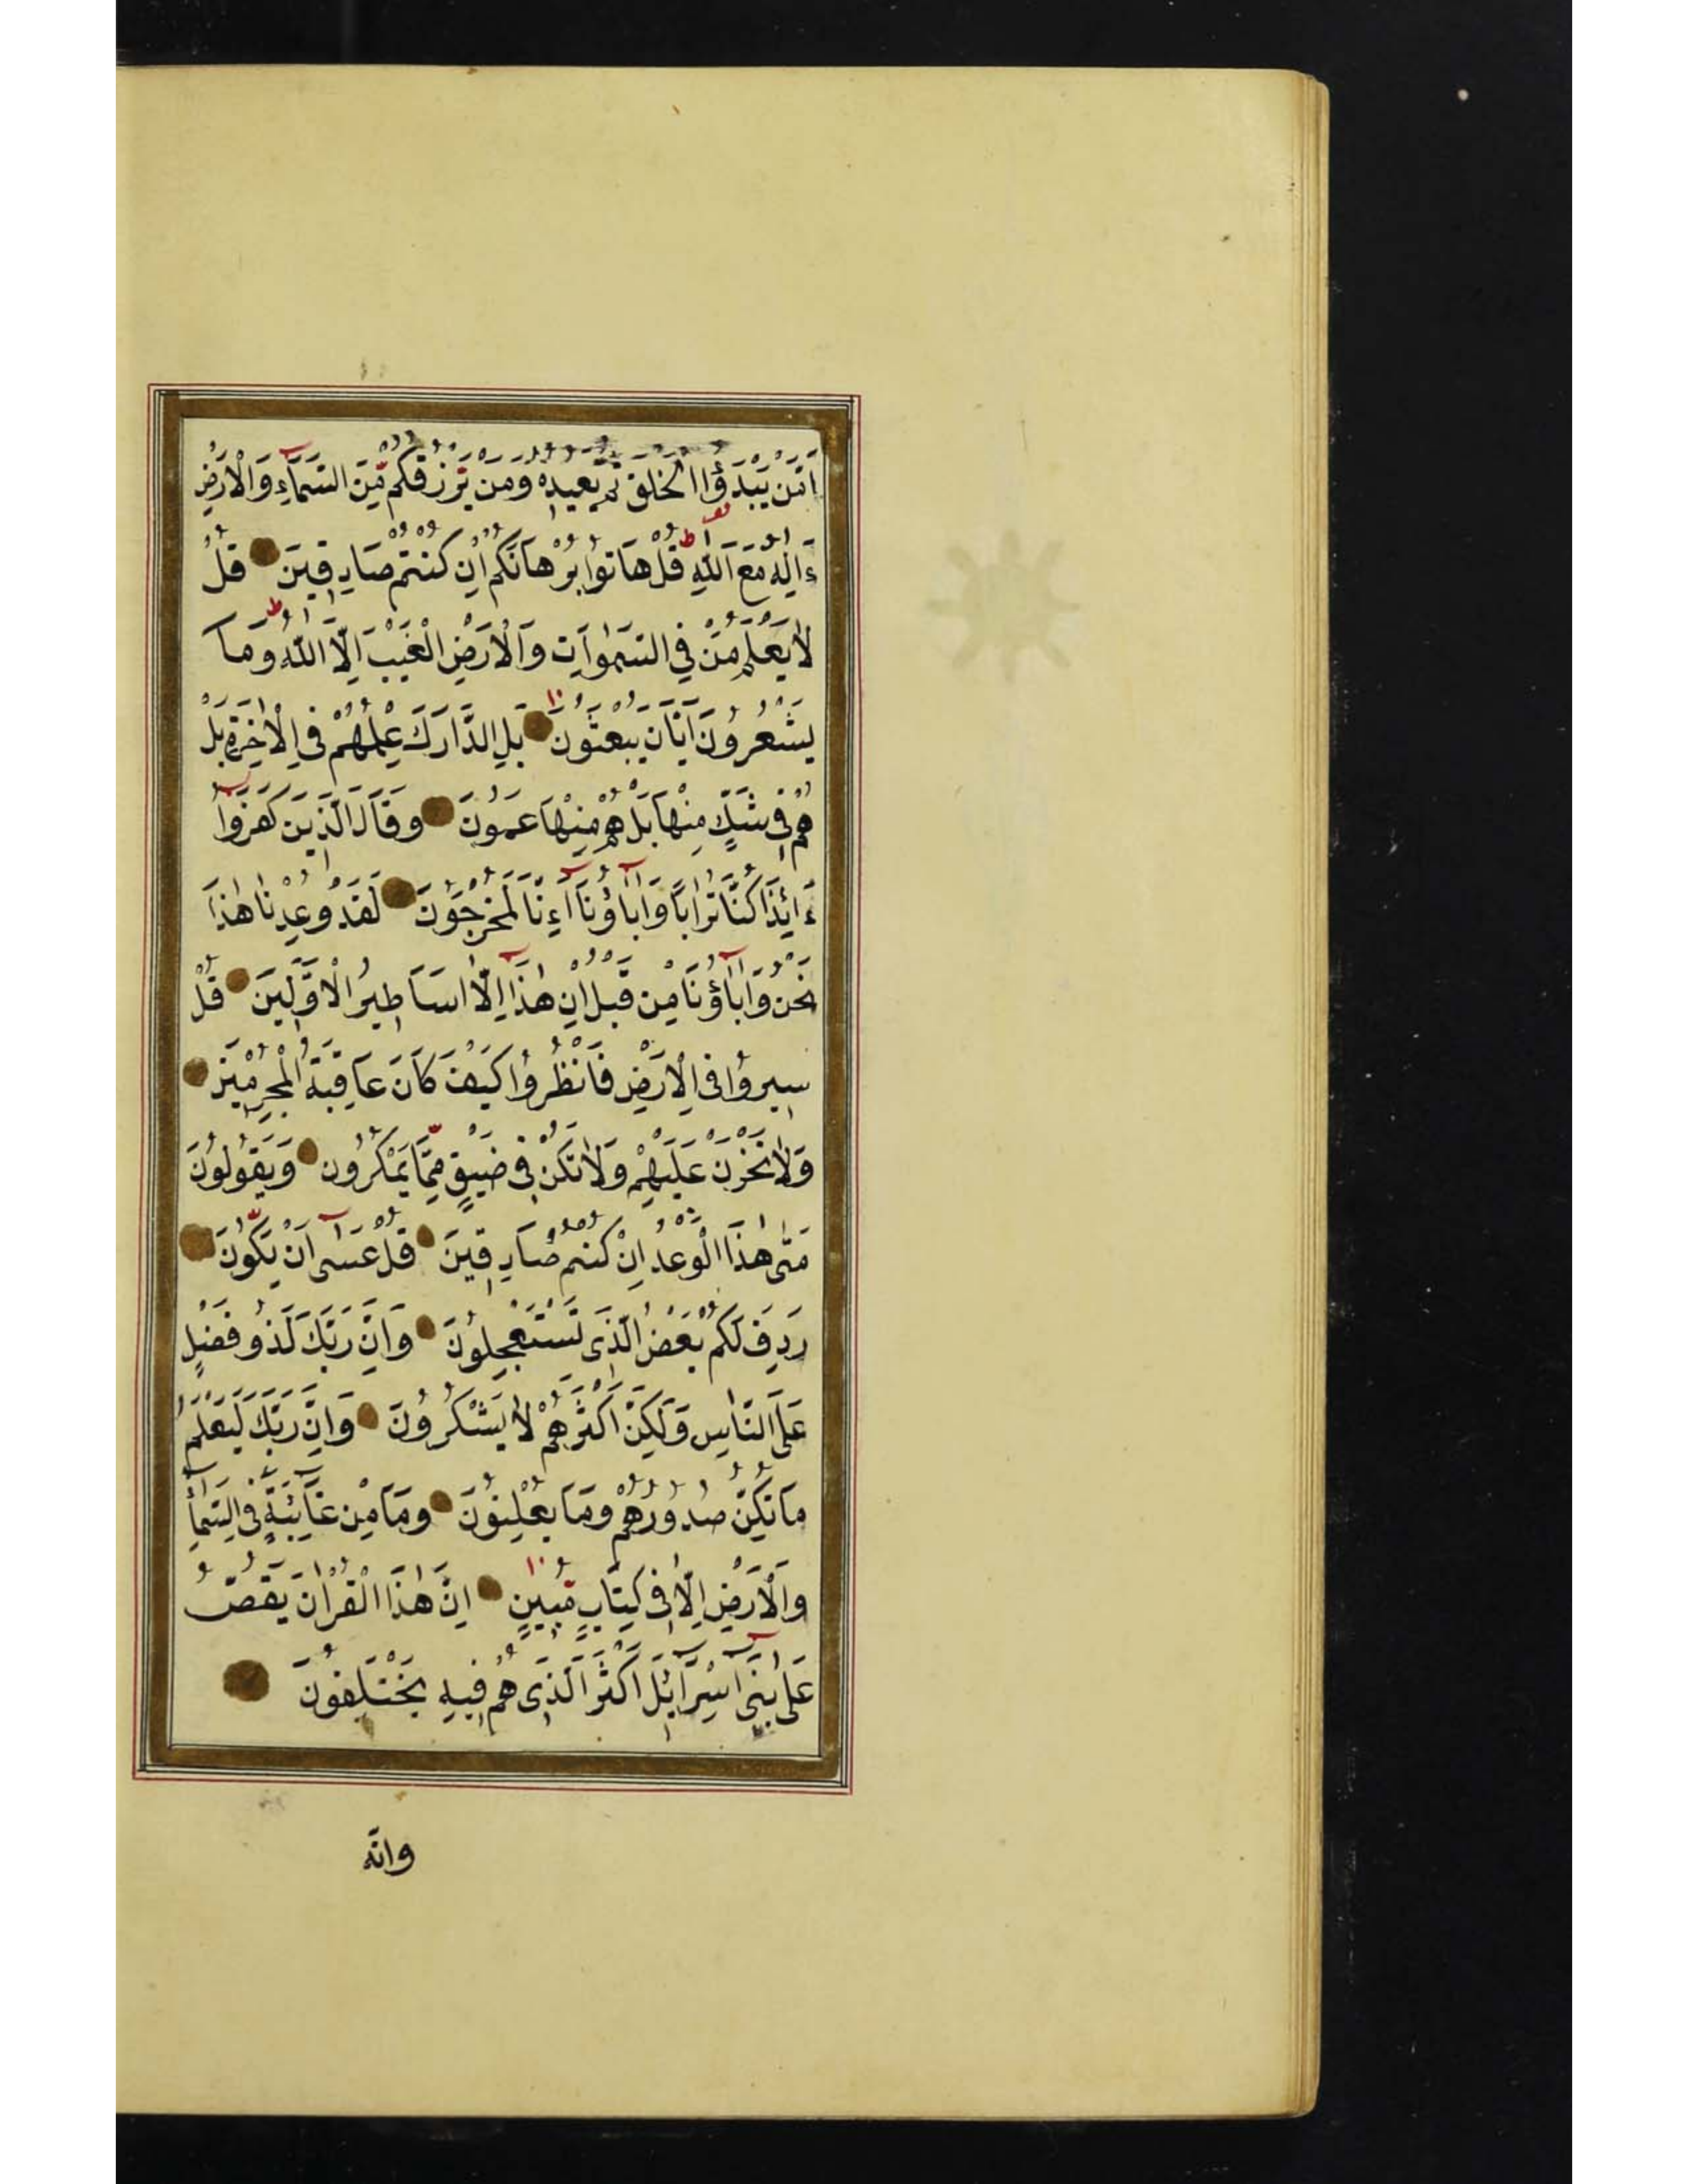 اَمَّنْ يَبْدَؤُا الْخَلْقَ ثُمَّ يُعِيدُهُ وَمَنْ يَرْزُقُكُمْ مِنَ السَّمَاءِ وَالْاَرْضِ
ءَاِلٰهٌ مَعَ اللّٰهِ قُلْ هَاتُوا بُرْهَانَكُمْ اِنْ كُنْتُمْ صَادِقِينَ قُلْ
لَا يَعْلَمُ مَنْ فِي السَّمٰوَاتِ وَالْاَرْضِ الْغَيْبَ اِلَّا اللّٰهُ وَمَا
يَشْعُرُونَ اَيَّانَ يُبْعَثُونَ بَلِ ادَّارَكَ عِلْمُهُمْ فِي الْاٰخِرَةِ بَلْ
هُمْ فِي شَكٍّ مِنْهَا بَلْ هُمْ مِنْهَا عَمُونَ وَقَالَ الَّذِينَ كَفَرُوا
ءَاِئذَا كُنَّا تُرَابًا وَاٰبَاؤُنَا اَءِنَّا لَمُخْرَجُونَ لَقَدْ وُعِدْنَا هٰذَا
نَحْنُ وَاٰبَاؤُنَا مِنْ قَبْلُ اِنْ هٰذَا اِلَّا اَسَاطِيرُ الْاَوَّلِينَ قُلْ
سِيرُوا فِي الْاَرْضِ فَانْظُرُوا كَيْفَ كَانَ عَاقِبَةُ الْمُجْرِمِينَ
وَلَا تَحْزَنْ عَلَيْهِمْ وَلَا تَكُنْ فِي ضَيْقٍ مِمَّا يَمْكُرُونَ وَيَقُولُونَ
مَتٰى هٰذَا الْوَعْدُ اِنْ كُنْتُمْ صَادِقِينَ قُلْ عَسٰى اَنْ يَكُونَ
رَدِفَ لَكُمْ بَعْضُ الَّذِى تَسْتَعْجِلُونَ وَاِنَّ رَبَّكَ لَذُو فَضْلٍ
عَلَى النَّاسِ وَلٰكِنَّ اَكْثَرَهُمْ لَا يَشْكُرُونَ وَاِنَّ رَبَّكَ لَيَعْلَمُ
مَا تُكِنُّ صُدُورُهُمْ وَمَا يُعْلِنُونَ وَمَا مِنْ غَائِبَةٍ فِي السَّمَاءِ
وَالْاَرْضِ اِلَّا فِي كِتَابٍ مُبِينٍ اِنَّ هٰذَا الْقُرْاٰنَ يَقُصُّ
عَلٰى بَنِى اِسْرَائِلَ اَكْثَرَ الَّذِى هُمْ فِيهِ يَخْتَلِفُونَ
وانّه